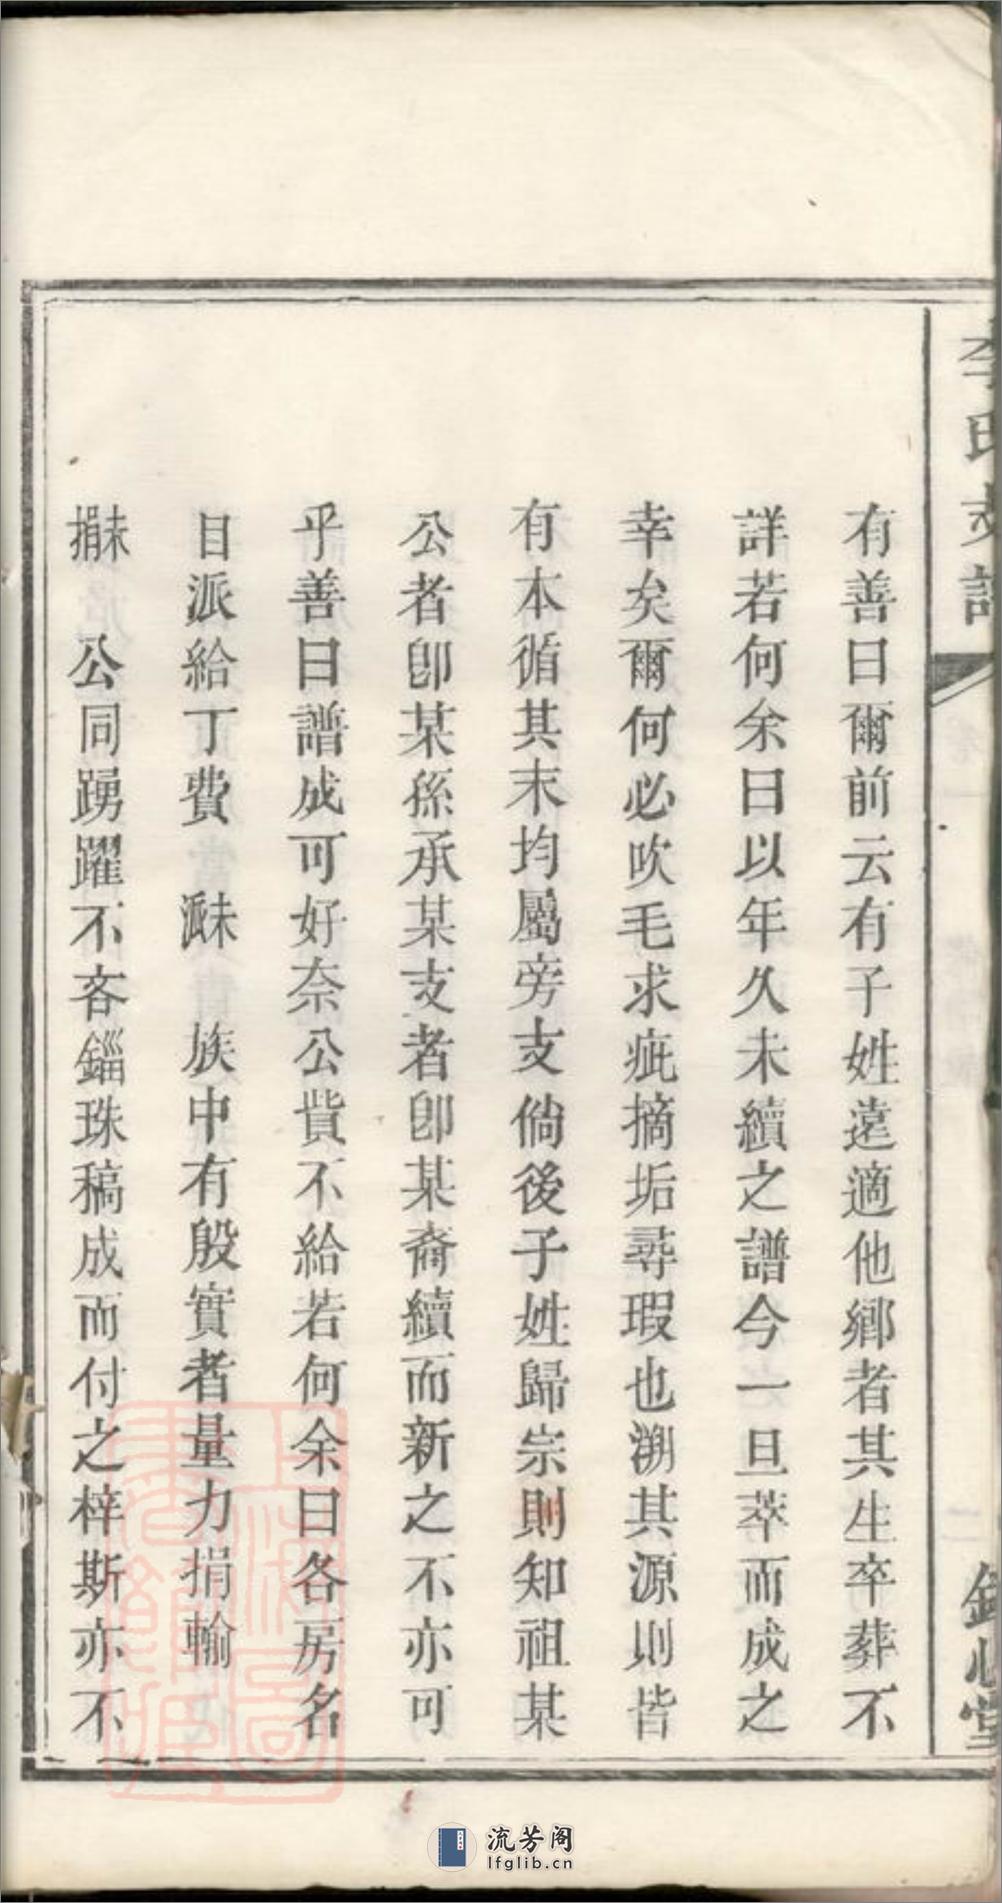 李氏支譜
二
有善曰爾前云有子姓遠適他鄉者其生卒葬不
詳若何余曰以年久未續之譜今一旦萃而成之
幸矣爾何必吹毛求疵摘垢尋瑕也溯其源則皆
有本循其末均屬旁支倘後子姓歸宗則知祖某
公者卽某孫承某支者卽某裔續而新之不亦可
乎善曰譜成可好奈公貲不給若何余曰各房名
目派給丁費 未派 族中有殷實者量力捐輸
未捐 公同踴躍不吝錙珠稿成而付之梓斯亦不
流芳阁
lfglib.cn